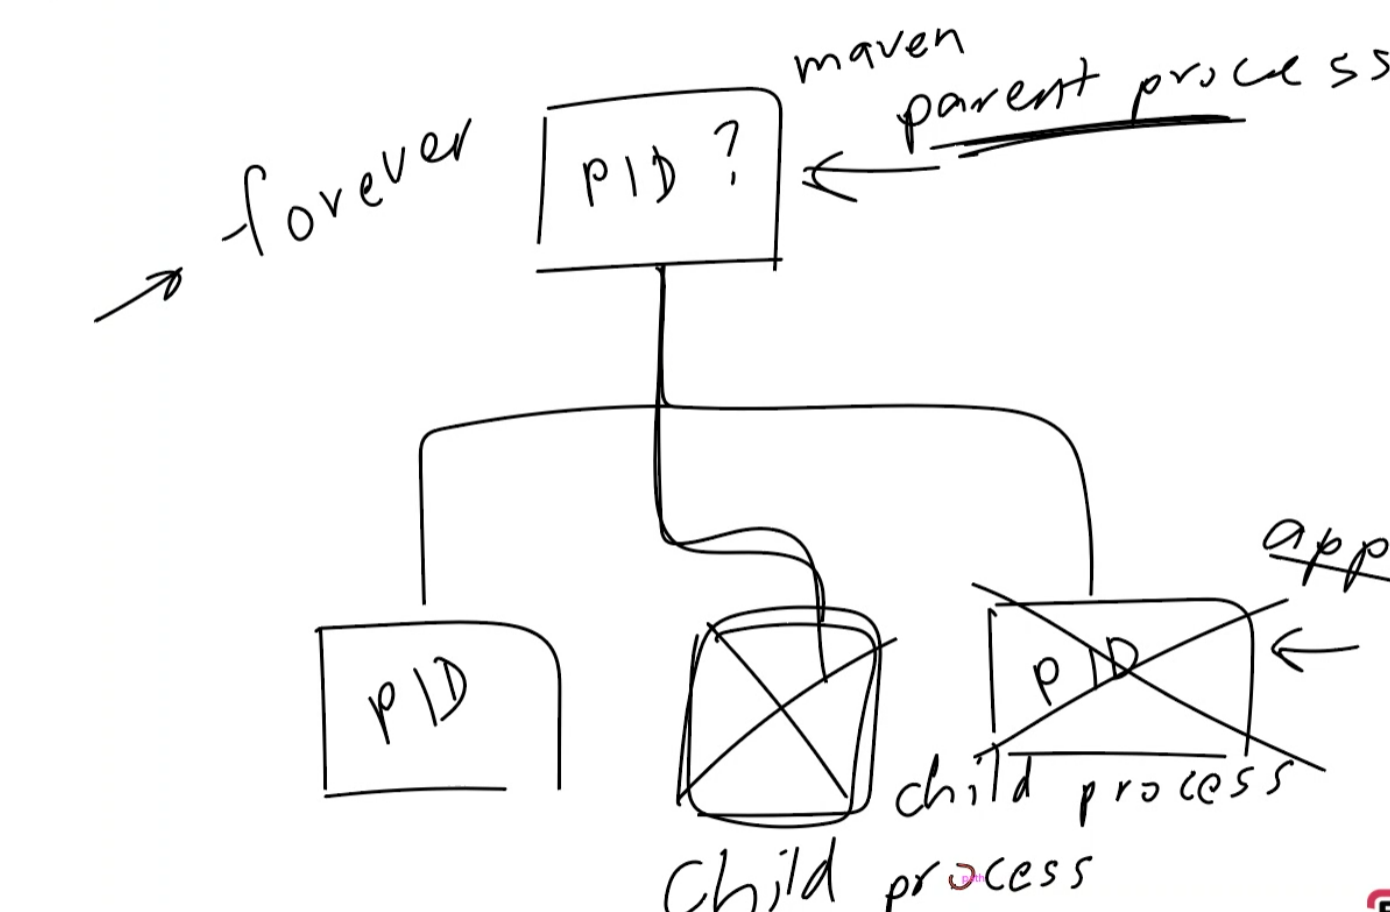 maven
parent process
forever
PID ?
app
PID
PID
child process
Child process
path